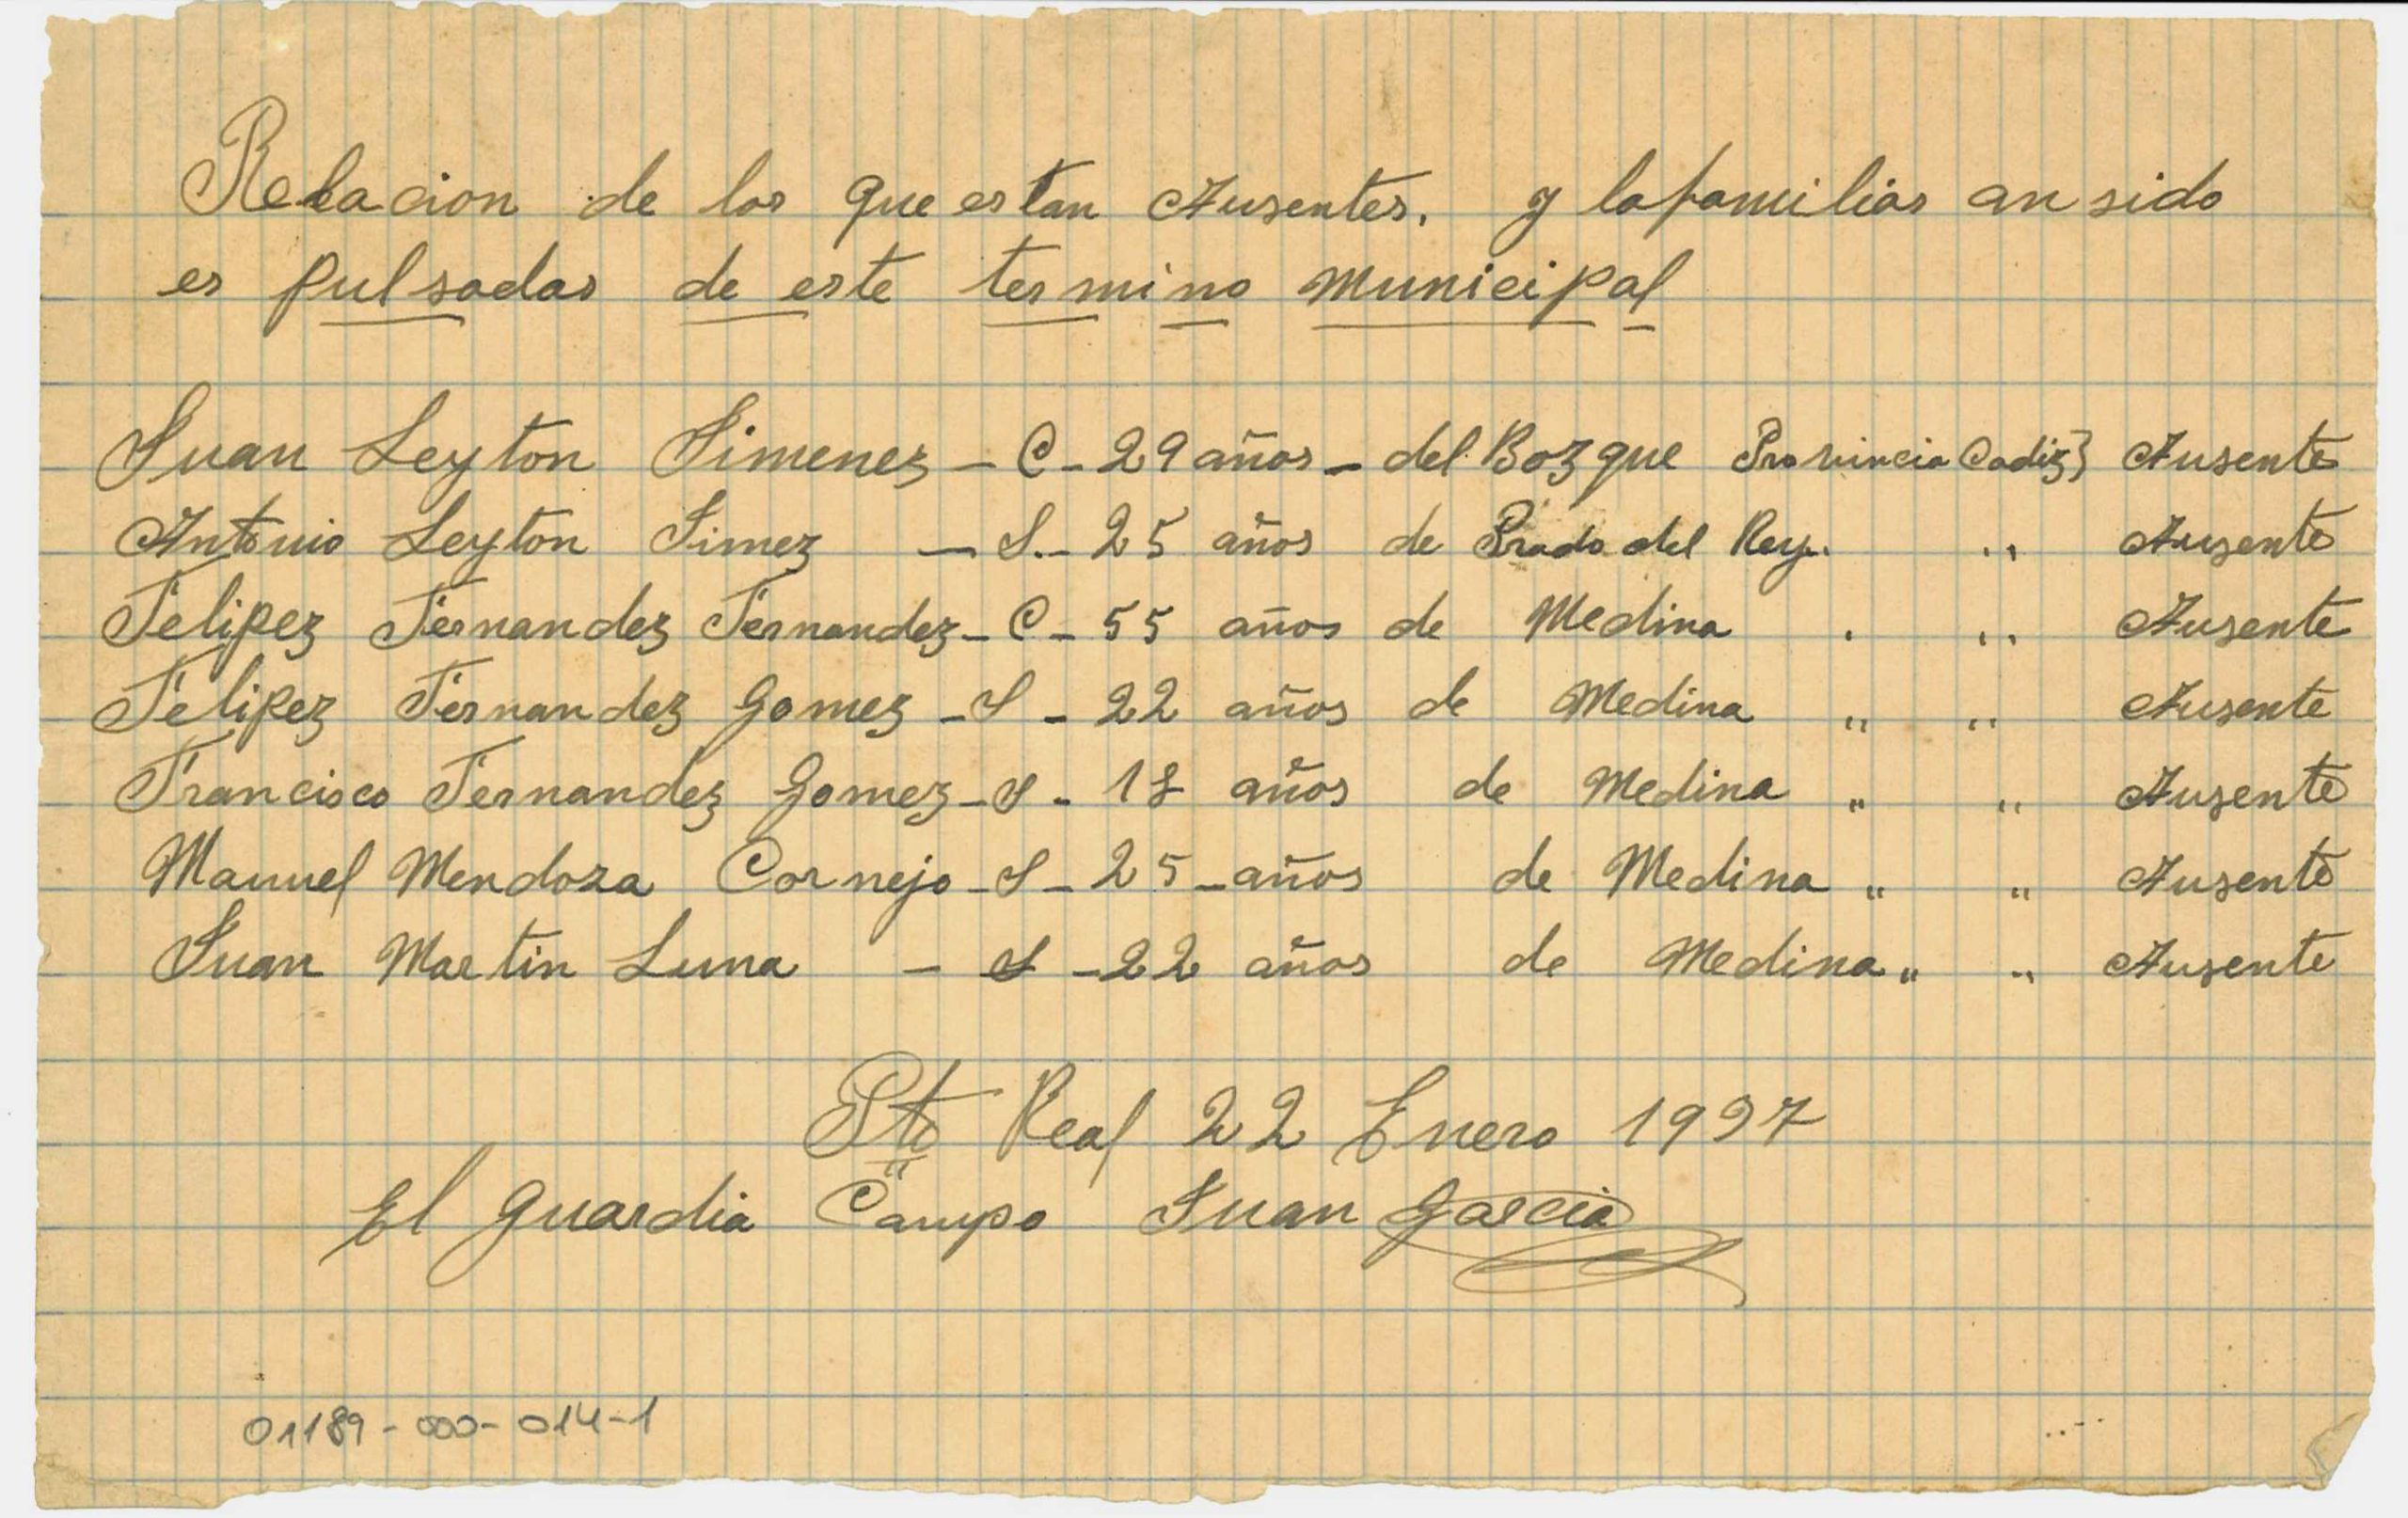 Relacion de los que estan Ausentes. y lafamilias an sido
es pulsadas de este termino municipal
Juan Leyton Jimenez - C - 29 años - del Bozque Provincia Cadiz} Ausente
Antonio Leyton Jimez - S. - 25 años de Prado del Rey. " Ausente
Felipez Fernandez Fernandez - C - 55 años de Medina . " Ausente
Felipez Fernandez Gomez - S - 22 años de Medina " " Ausente
Francisco Fernandez Gomez - S - 18 años de Medina " " Ausente
Manuel Mendoza Cornejo - S - 25 - años de Medina " " Ausente
Juan Martin Luna - S - 22 años de Medina " " Ausente
Pto Real 22 Enero 1937
El guardia Campo Juan Garcia
01189-000-014-1